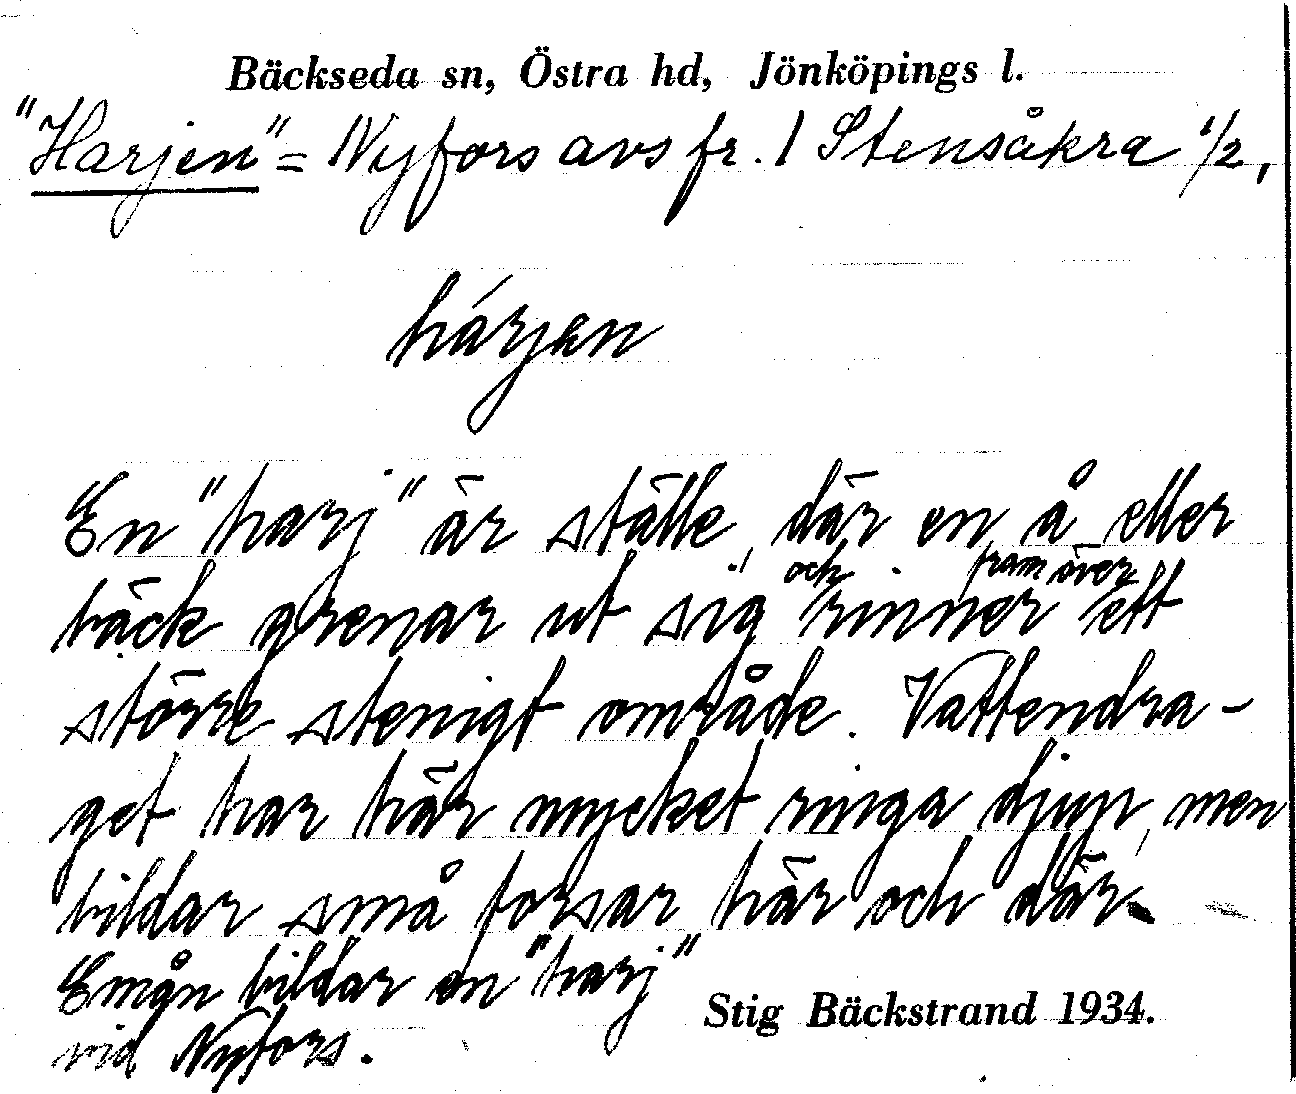 Bäckseda sn, Östra hd, Jönköpings l.
"Harjen" = Nyfors avs fr. 1 Stensåkra 1/2,
hárjen
En "harj" är ställe, där en å eller
bäck grenar ut sig och rinner fram över ett
större stenigt område. Vattendra-
get har här mycket ringa djup, men
bildar små forsar här och där.
Emån bildar en "harj"
vid Nyfors.
Stig Bäckstrand 1934.